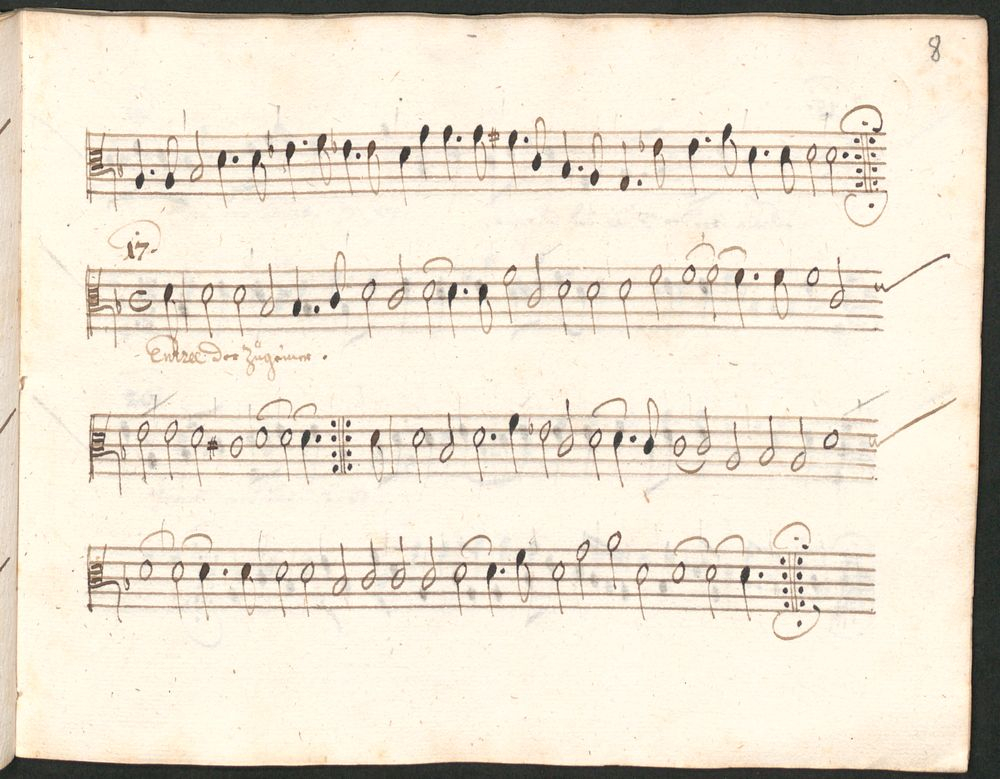 8
17.
Entree der Zügeiner.